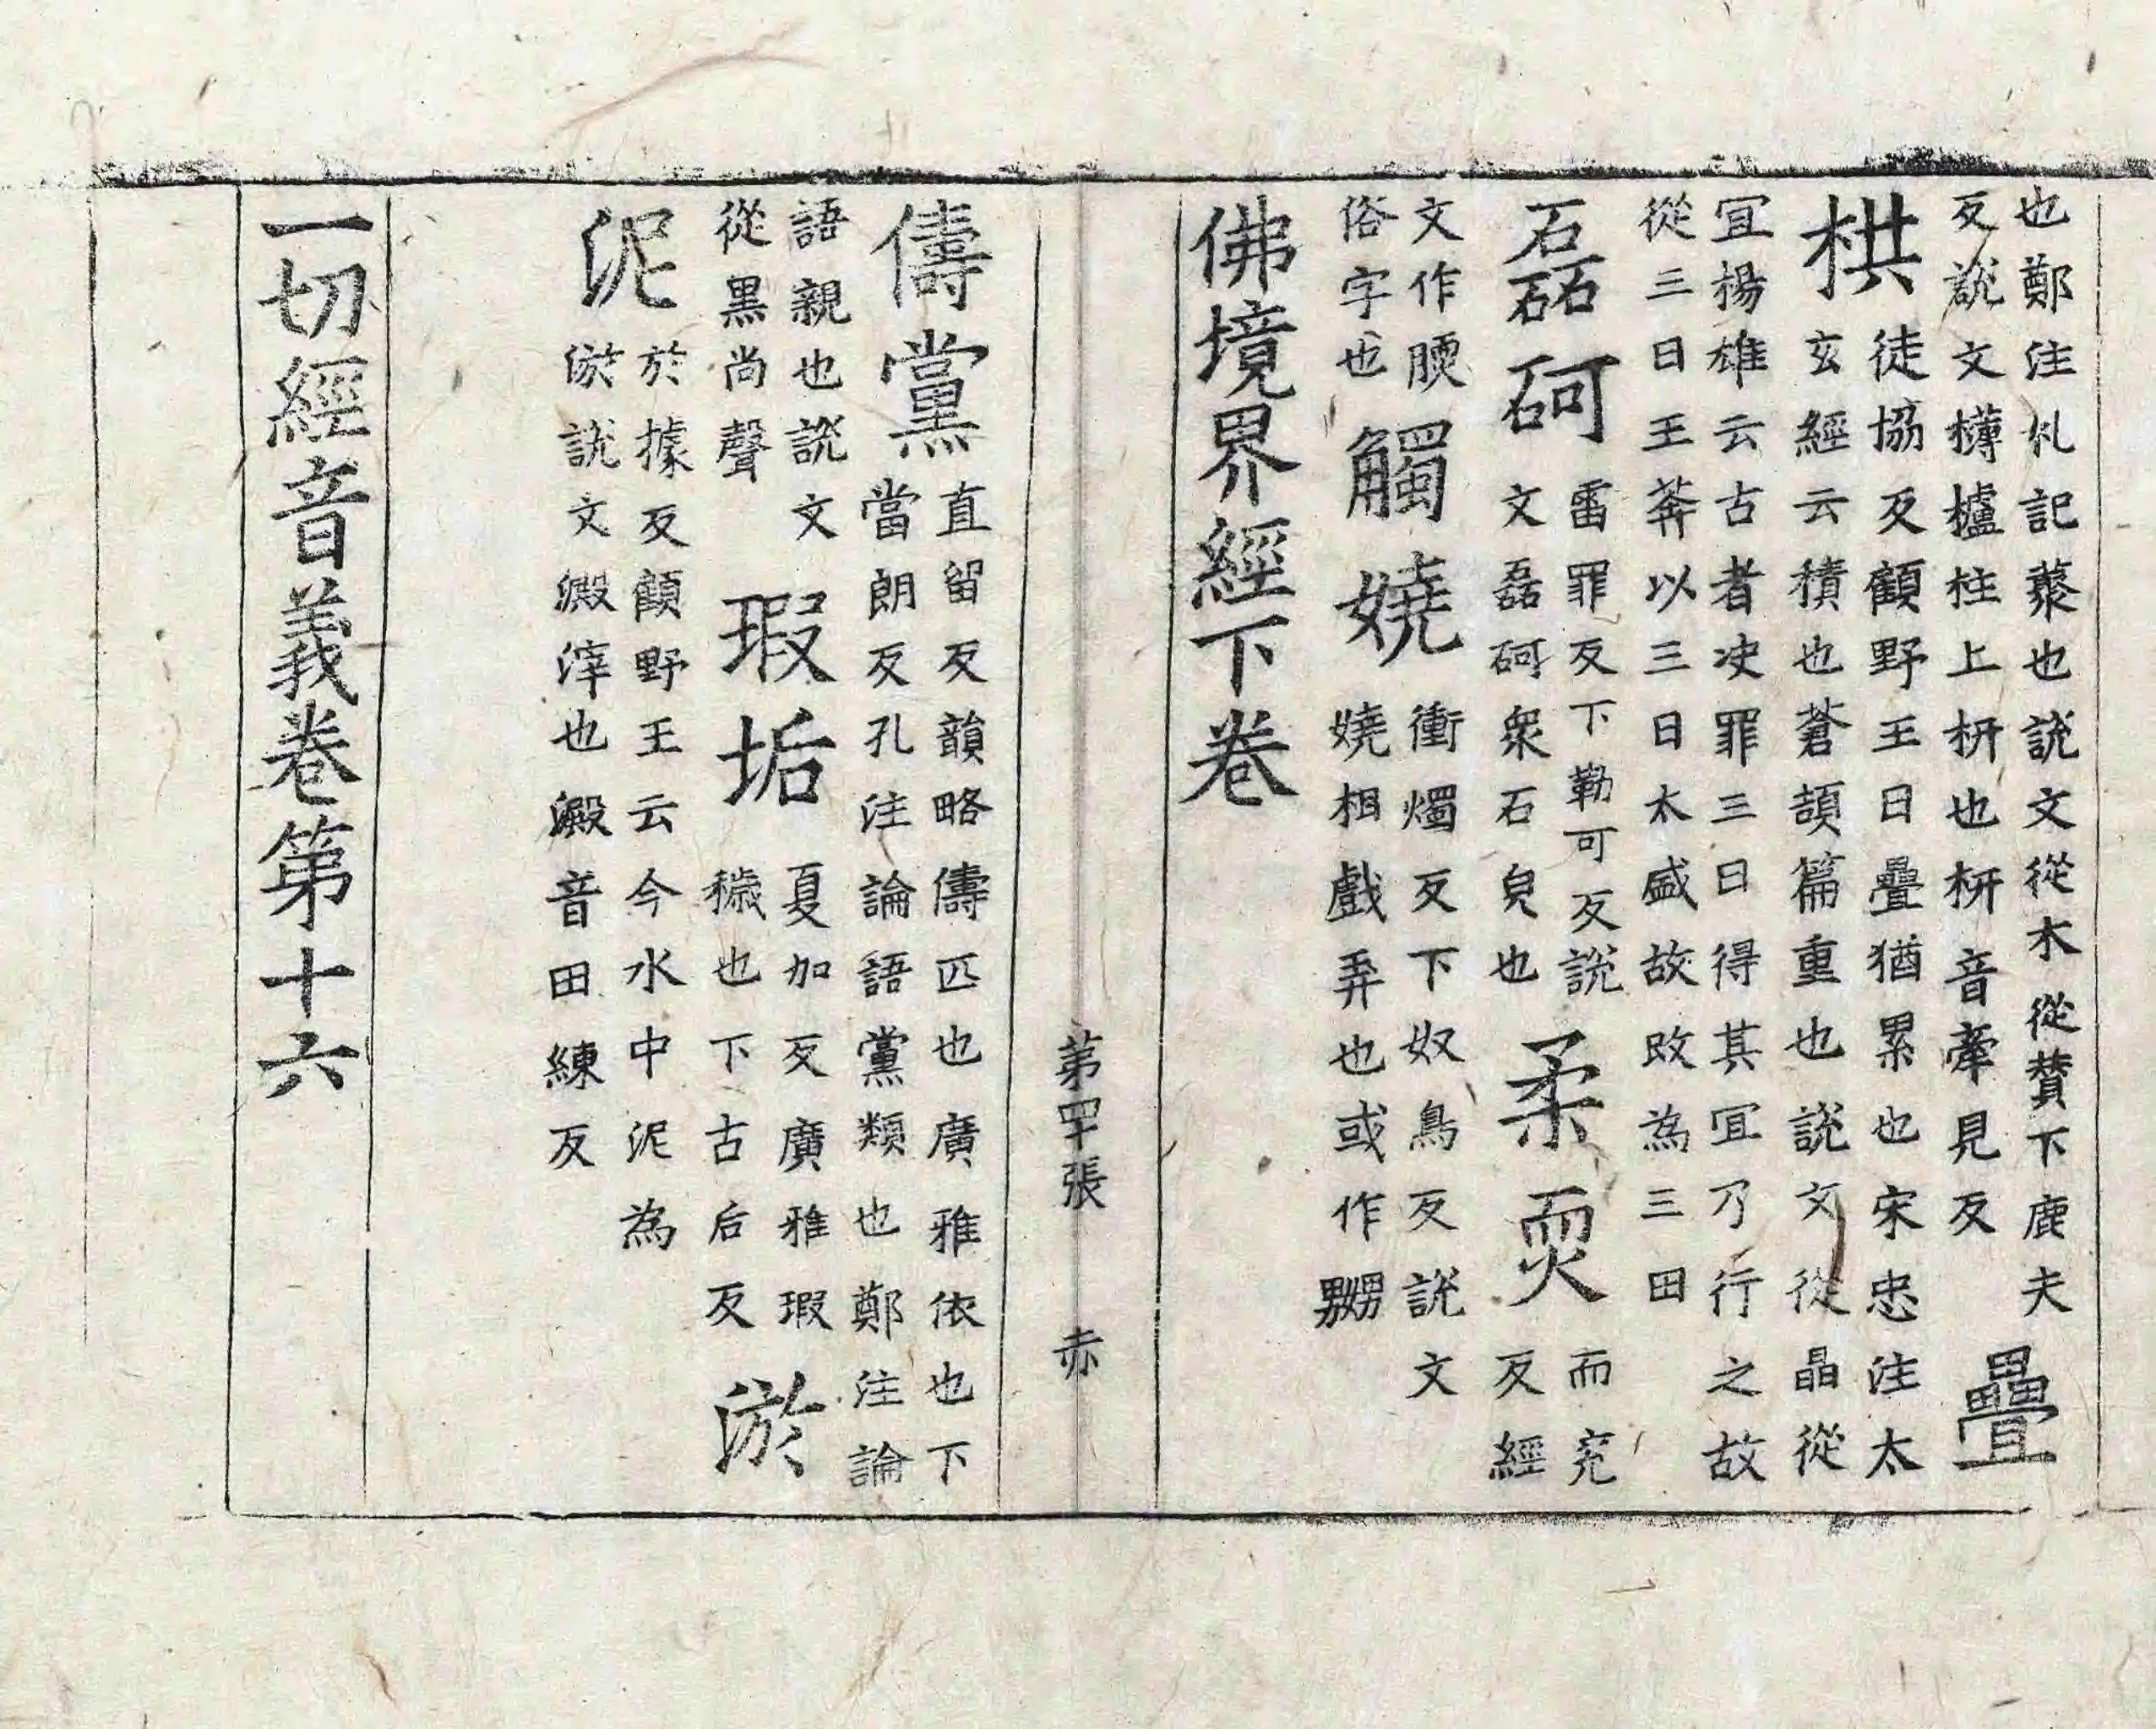 也鄭注礼記藂也說文從木從賛下鹿夫
反說文欂櫨柱上枅也枅音牽見反
疊
栱
徒協反顧野王曰疊猶累也宋忠注太
玄經云積也蒼頡篇重也說文從晶從
冝楊雄云古者决罪三日得其冝乃行之故
從三日王莾以三日太盛故改為三田
磊砢
雷罪反下勒可反說
文磊砢衆石皃也
柔耎
而兖
反經
文作腝
俗字也
觸嬈
衝燭反下奴鳥反說文
嬈相戲弄也或作嬲
佛境界經下卷
第四十張 赤
儔黨
直留反韻略儔匹也廣雅依也下
當朗反孔注論語黨類也鄭注論
語親也說文
從黒尚聲
瑕垢
夏加反廣雅瑕
穢也下古后反
淤
泥
於據反顧野王云今水中泥為
淤說文澱滓也澱音田練反
一切經音義卷第十六